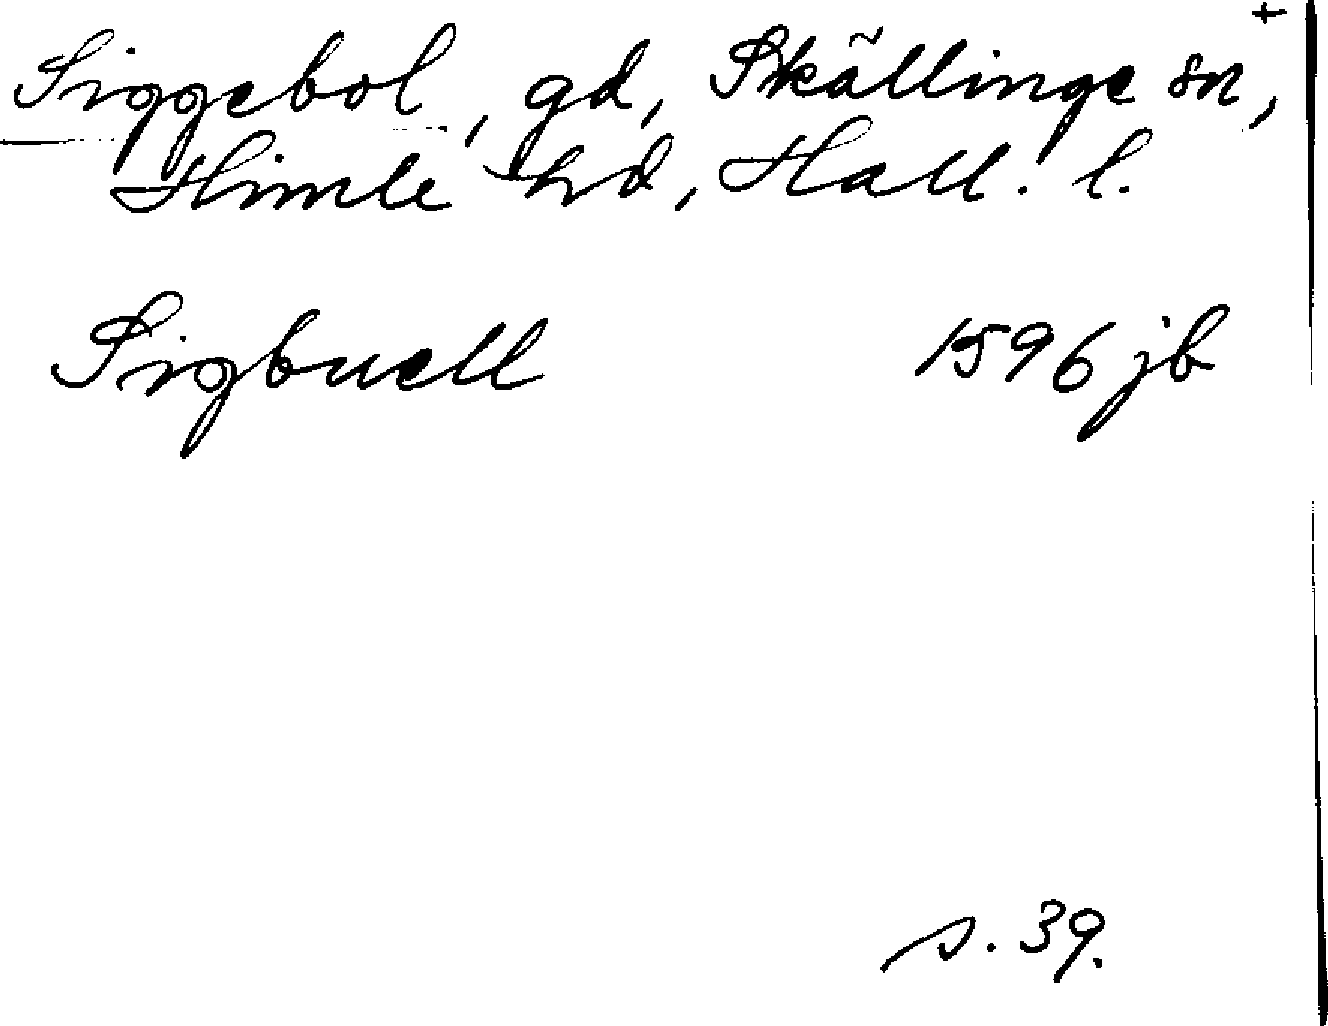 Siggebol, gd, Skällinge sn,
Himle hd, Hall. l.
Sigbuell 1596 jb
s. 39.